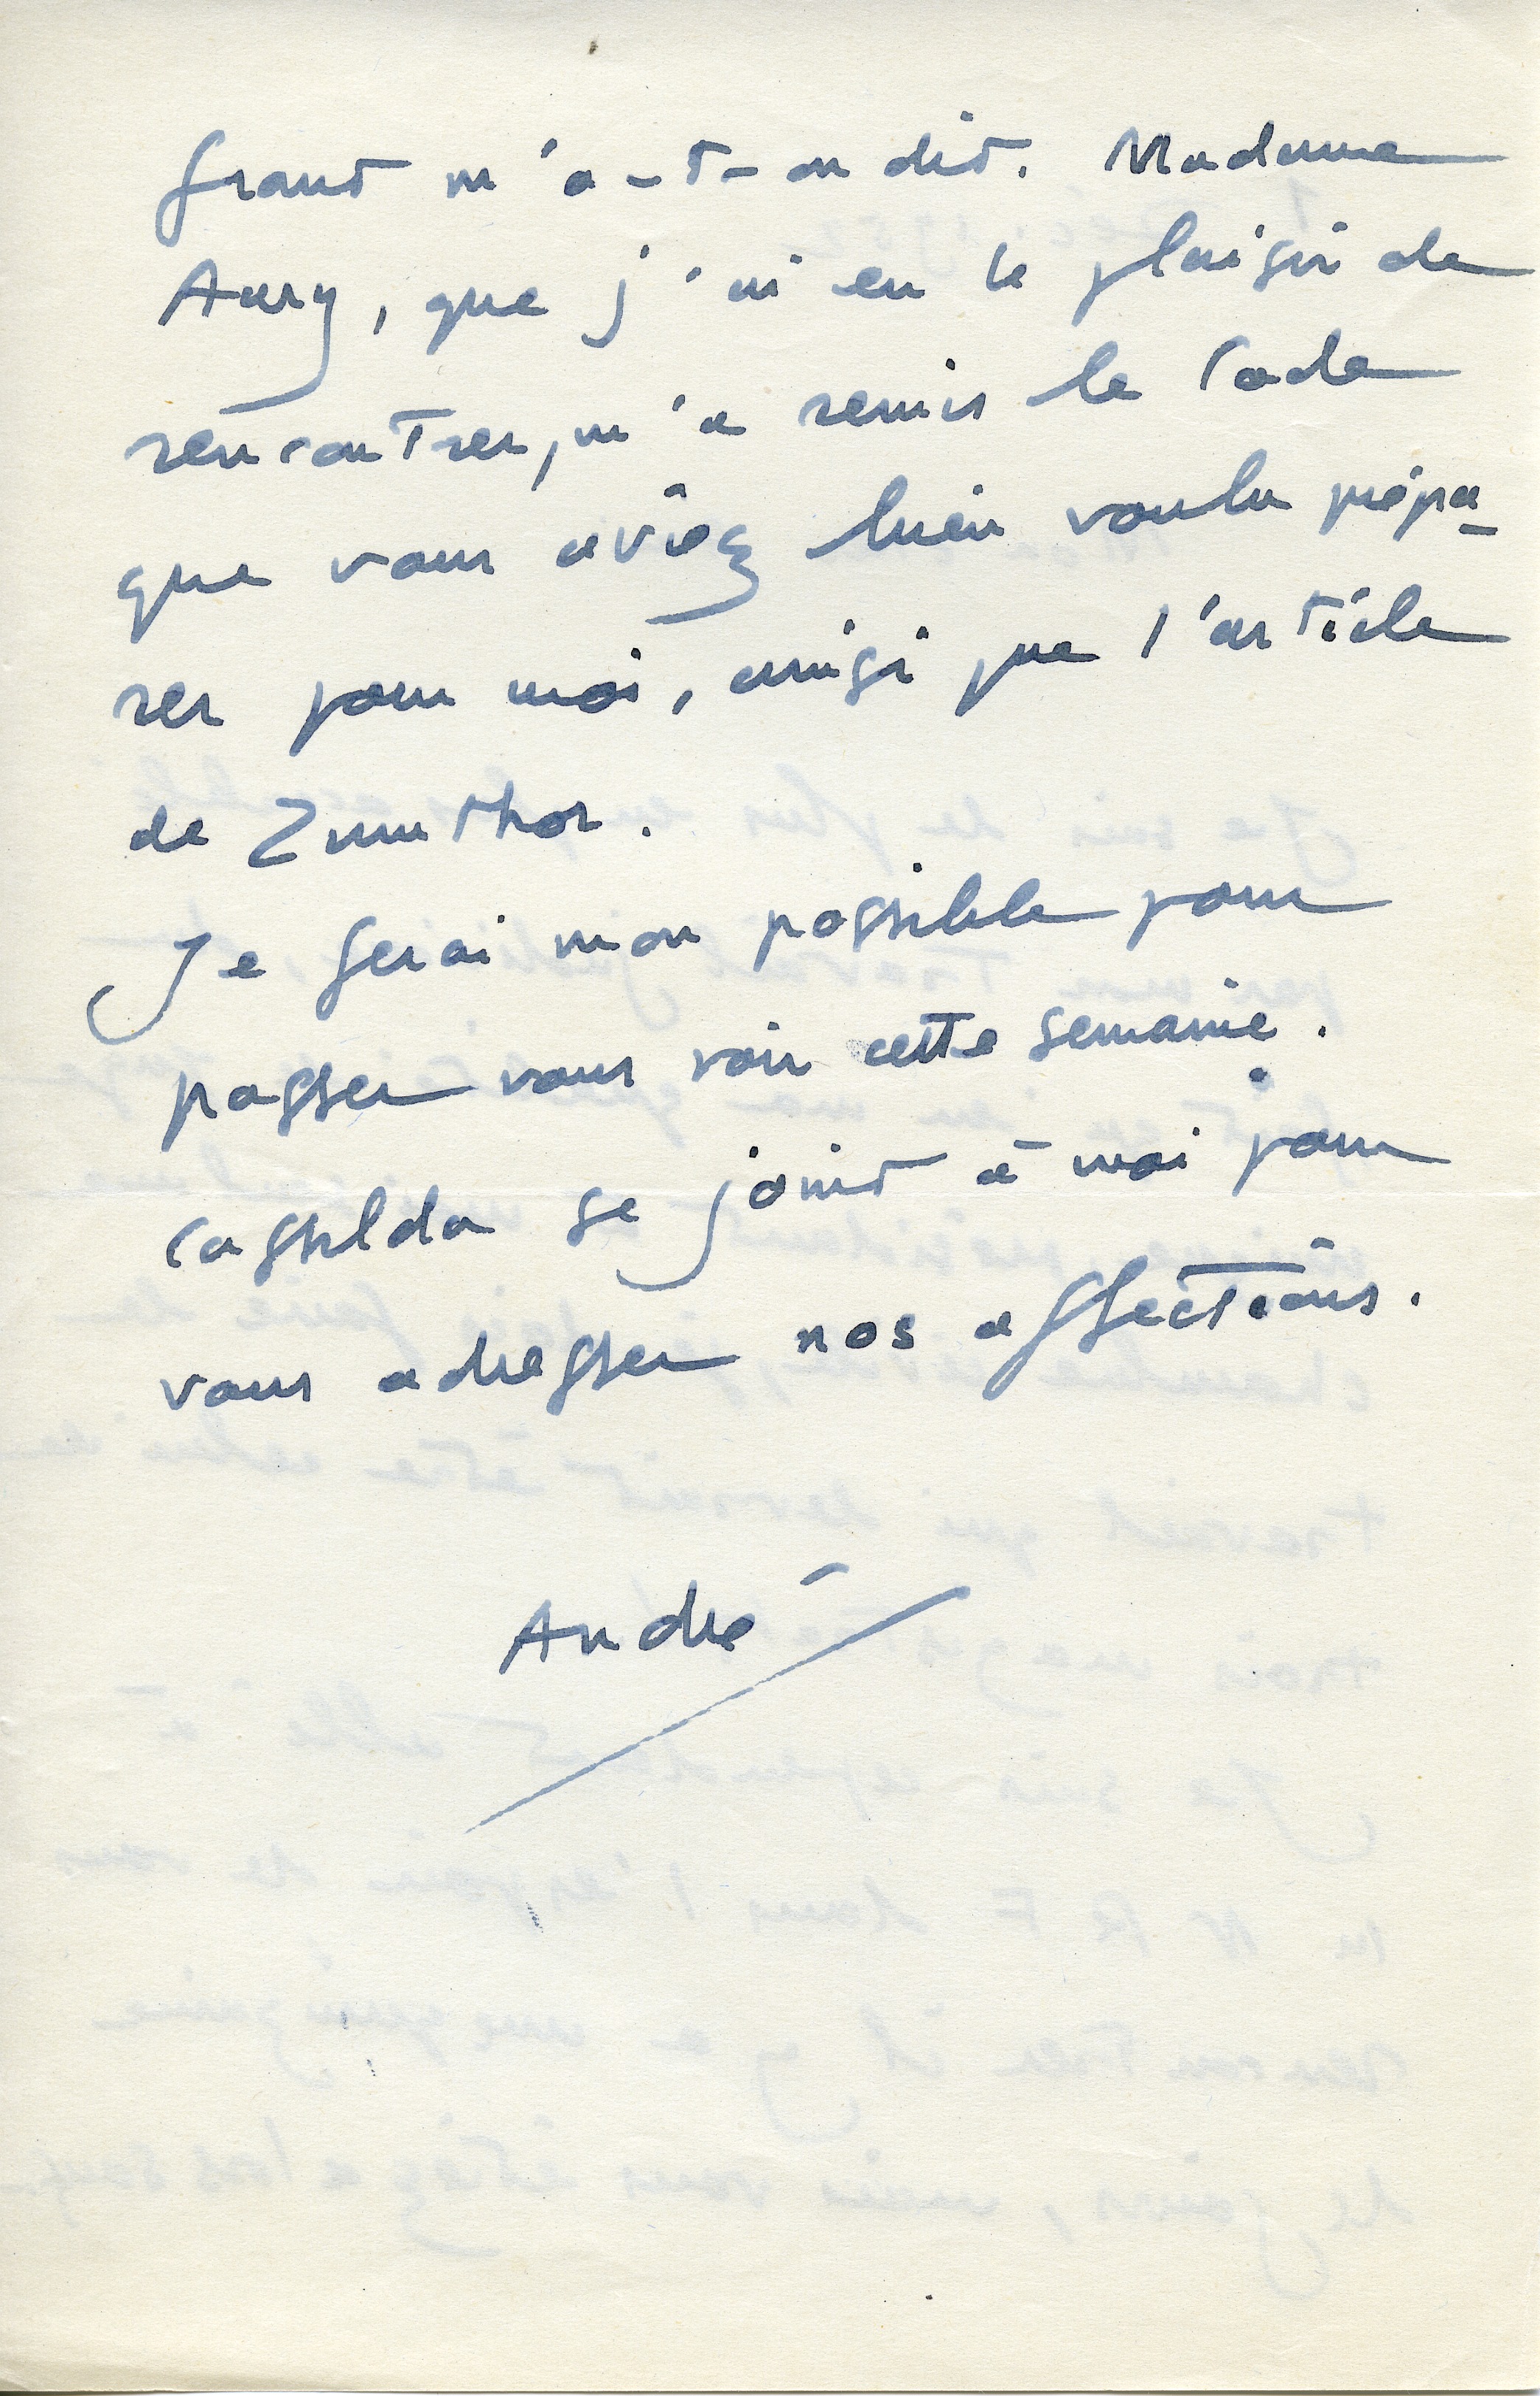 frant m'a-t-on dit. Madame
Aury, que j'ai eu le plaisir de
rencontrer, m'a remis le Code
que vous aviez bien voulu prépa-
rer pour moi, ainsi que l'article
de Zumthor.
Je ferai mon possible pour
passer vous voir cette semaine.
Cassilda se joint à moi pour
vous adresser nos affections.
André